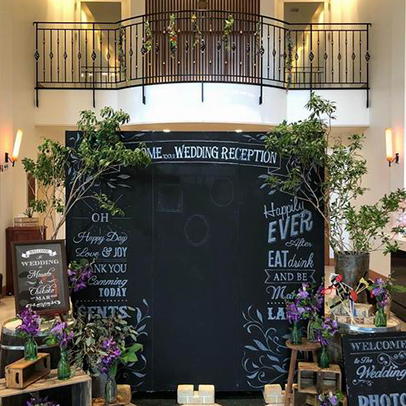 OME TO OUR WEDDING RECEPTION
OH
Happy Day
Love & JOY
THANK YOU
Comming
TODAY
GENTS
Happily
EVER
After
EAT drink
AND BE
LA
WELCOME
WEDDING
&
MAR
WELCOME
to The
Wedding
PHOTO